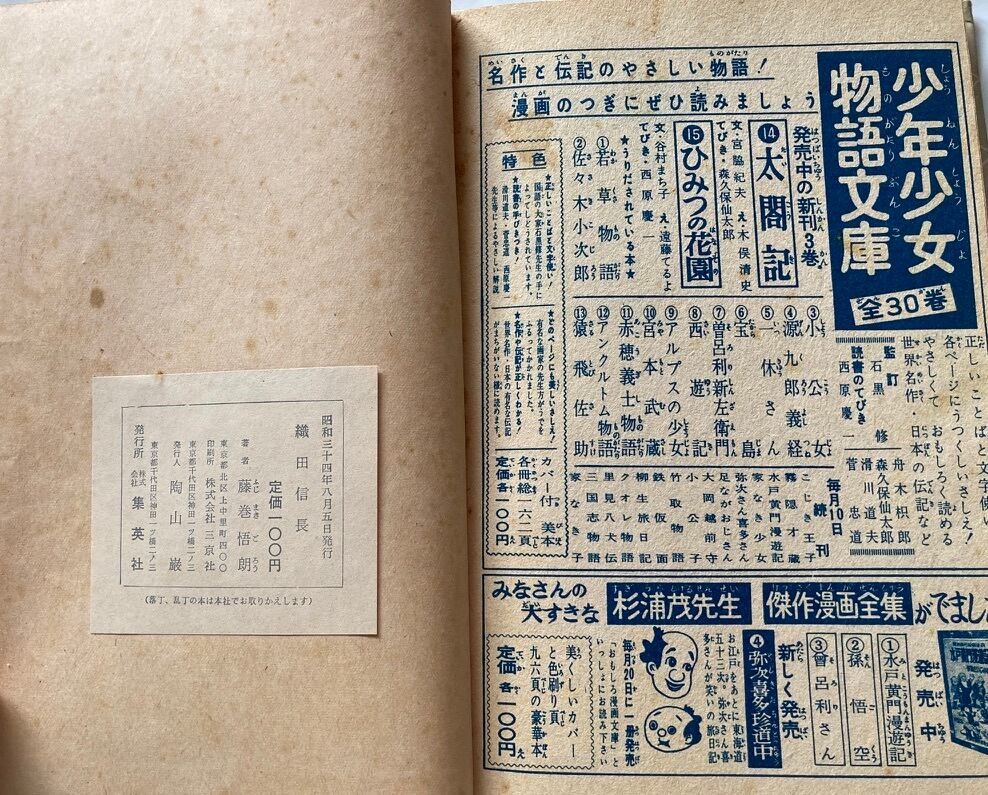 昭和三十四年八月五日発行
織田信長
定価一〇〇円
著者 藤巻悟朗
ふじまきごろう
東京都北区上中里町四〇〇
印刷所 株式会社三京社
東京都千代田区神田一ツ橋二ノ三
発行人 陶山巌
東京都千代田区神田一ツ橋二ノ三
発行所 株式会社 集英社
(落丁、乱丁の本は本社でお取りかえします)
名作と伝記のやさしい物語!
漫画のつぎにぜひ読みましょう
少年少女
物語文庫
全30巻
正しいことばと文字使い
各ページにうつくしいさしえ!
やさしくて、おもしろく読める
世界名作・日本の伝記など
監訂
石黒修
読書のてびき
西原慶一
舟木枳郎
森久保仙太郎
滑川道夫
菅忠道
発売中の新刊3巻
⑭太閤記
文・宮脇紀夫 え・木俣清史
てびき・森久保仙太郎
⑮ひみつの花園
文・谷村まち子 え・遠藤てるよ
てびき・西原慶一
★うりだされている本★
①若草物語
②佐々木小次郎
③小公女
④源九郎義経
⑤一休さん
⑥宝島
⑦曽呂利新左衛門
⑧西遊記
⑨アルプスの少女
⑩宮本武蔵
⑪赤穂義士物語
⑫アンクルトム物語
⑬猿飛佐助
毎月10日続刊
こじき王子
霧隠才蔵
水戸黄門漫遊記
家なき少女
弥次さん喜多さん
足ながおじさん
大岡越前守
小公子
竹取物語
鉄仮面
柳生旅日記
クオレ物語
里見八犬伝
三国志物語
家なき子
特色
★正しいことばと文字使い!
国語の大家石黒修先生の手に
よってしどうされています。
★読書の手びきつき!
滑川道夫・菅忠道・西原慶一
先生等によるやさしい解説
★どのページにも美しいさしえ!
有名な画家の先生方がうでを
ふるってかかれました。
★名作や伝記が正しくわかる!
世界名作・日本の有名な伝記
がまちがいない様に読めます。
カバー付 美本
各冊総一六二頁
定価各一〇〇円
みなさんの
大すきな
杉浦茂先生
傑作漫画全集
がでました
発売中
①水戸黄門漫遊記
②孫悟空
③曾呂利さん
新しく発売
④弥次喜多珍道中
お江戸をあとに東海道
五十三次。弥次さん喜
多さんが笑いの旅日記
毎月20日に一冊発売
「おもしろ漫画文庫」と
いっしょにお読み下さい
美くしいカバー
と色刷り頁
九六頁の豪華本
定価各一〇〇円